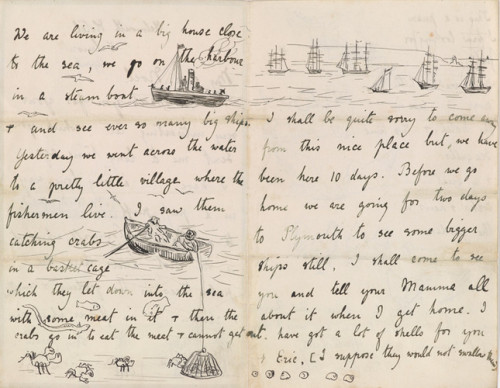 We are living in a big house close
to the sea, we go on the harbour
in a steam boat
+ and see ever so many big ships.
Yesterday we went across the water
to a pretty little village where the
fishermen live. I saw them
catching crabs
in a basket cage
which they let down into the sea
with some meat in it + then the
crabs go in to eat the meat + cannot get out.
I shall be quite sorry to come away
from this nice place but, we have
been here 10 days. Before we go
home we are going for two days
to Plymouth to see some bigger
ships still. I shall come to see
you and tell your Mamma all
about it when I get home. I
have got a lot of shells for you
+ Eric. [I suppose they would not swallow